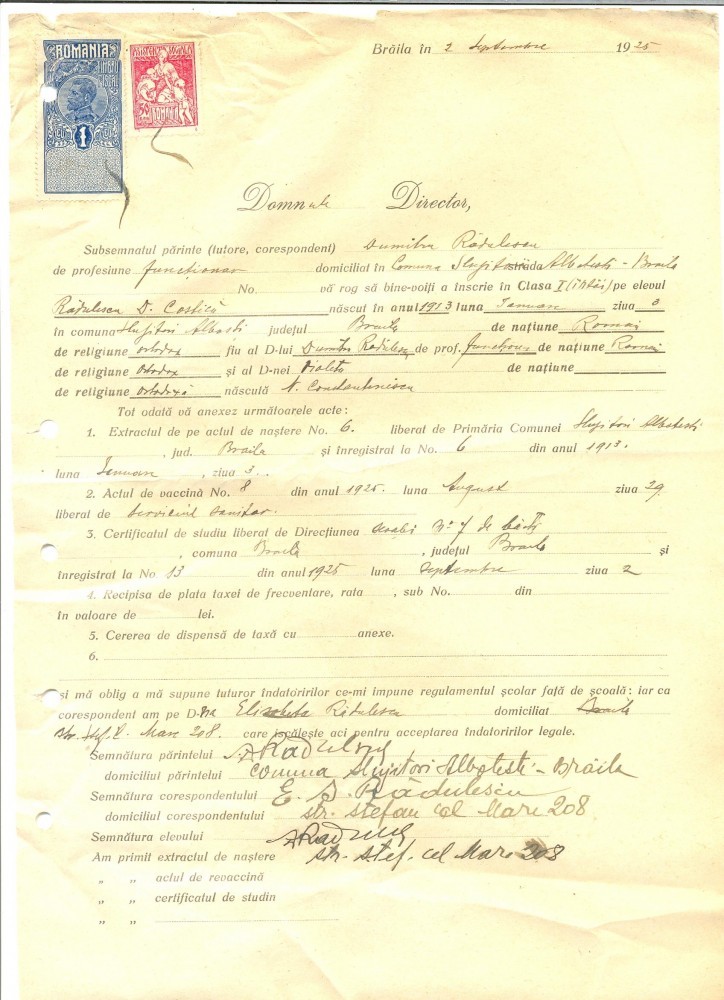 ROMANIA
TIMBRU FISCAL
1
ASISTENȚA SOCIALA
50
ROMANIA
Brăila în 2 Septembre 1925
Domnule Director,
Subsemnatul părinte (tutore, corespondent) Dumitru Rădulescu
de profesiune funcționar domiciliat în Comuna Slujitori strada Albotesti - Braila
No. vă rog să bine-voiți a înscrie în Clasa I (întâi) pe elevul
Rădulescu D. Costică născut în anul 1913 luna Ianuarie ziua 3
în comuna Slujitori Albotesti județul Braila de națiune Romană
de religiune ortodox fiu al D-lui Dumitru Radulescu de prof. funcționar de națiune Română
de religiune ortodox și al D-nei Violeta de națiune
de religiune ortodoxă născulă N. Constantinescu
Tot odată vă anexez următoarele acte:
1. Extractul de pe actul de naștere No. 6. liberat de Primăria Comunei Slujitori Albotesti
, jud. Braila și înregistrat la No. 6 din anul 1913.
luna Ianuarie , ziua 3..
2. Actul de vaccină No. 8 din anul 1925. luna August ziua 29
liberat de Serviciul sanitar.
3. Certificatul de studiu liberat de Direcțiunea școalei No 7 de băeți
, comuna Braila , județul Braila și
înregistrat la No 13 din anul 1925 luna Septembre ziua 2
4. Recipisa de plata taxei de frecventare, rata , sub No. din
în valoare de lei.
5. Cererea de dispensă de taxă cu anexe.
6.
și mă oblig a mă supune tuturor îndatoririlor ce-mi impune regulamentul școlar față de școală; iar ca
corespondent am pe D-na Elisabeta Rădulescu domiciliat Braila
str. Ștef. c. Mare 208. care iscălește aci pentru acceptarea îndatoririlor legale.
Semnătura părintelui
domiciliul părintelui comuna Slujitori Albotesti - Brăila
Semnătura corespondentului E. D. Rădulescu
domiciliul corespondentului str. Stefan cel Mare 208
Semnătura elevului
Am primit extractul de naștere str. Stef. cel Mare 208
„ „ actul de revaccină
„ „ certificatul de studin
„ „